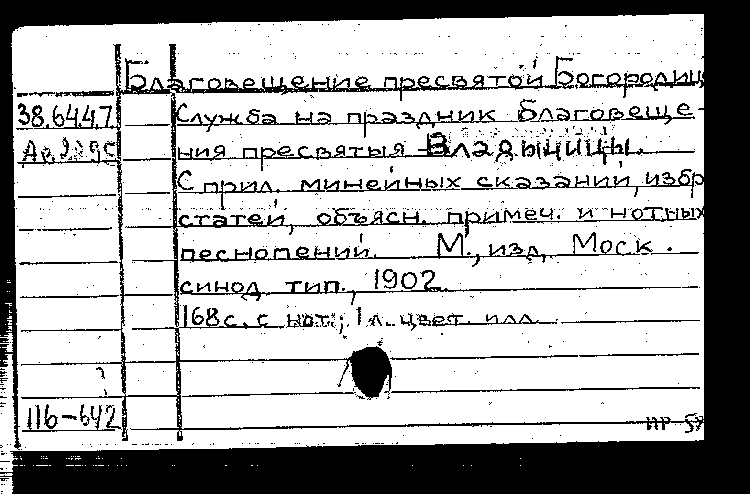 Благовещение пресвятой Богородиц
38.64.4.7 Служба на праздник Благовеще-
ния пресвятыя Владычицы.
С прил. минейных сказаний, избр
статей, объясн. примеч. и нотных
песнопений. М., изд. Моск.
синод. тип., 1902.
168 с. с нот.; 1 л. цвет. илл.
116-642